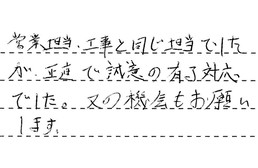 営業担当、工事と同じ担当でした
が、正直で誠意の有る対応
でした。又の機会もお願い
します。